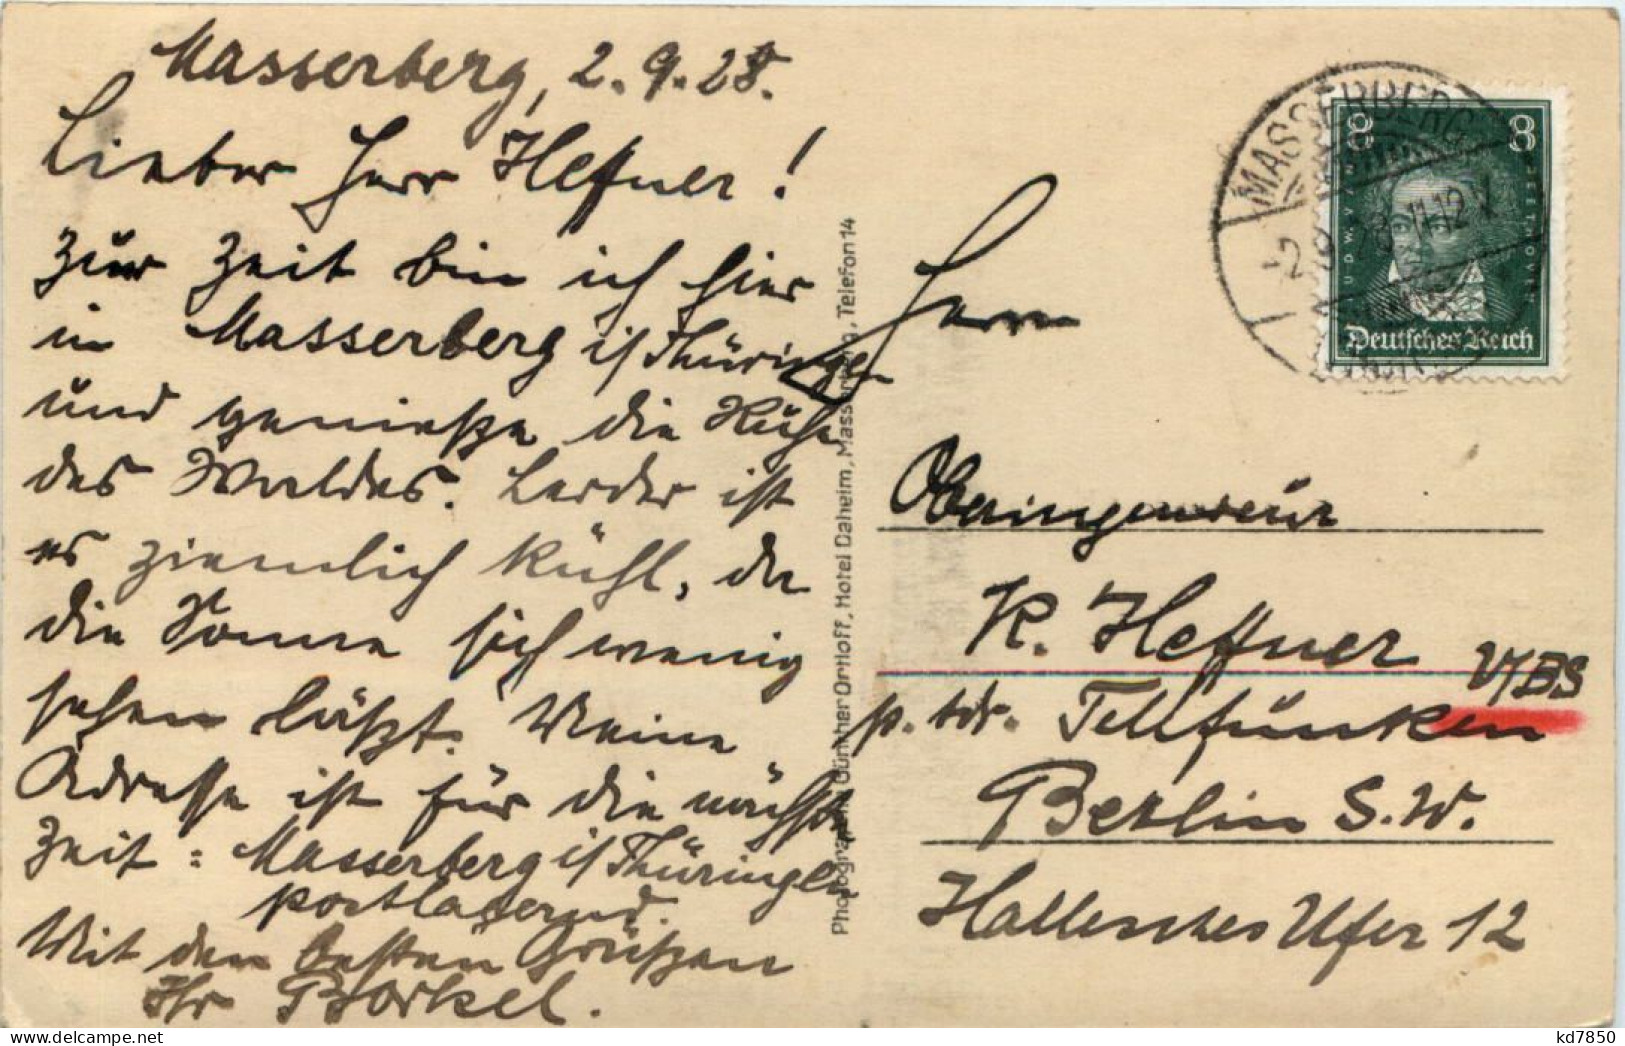 Masserberg, 2.9.28.
Lieber Herr Heffner!
Zur Zeit bin ich hier
in Masserberg i/Thüringen
und genieße die Ruhe
des Waldes. Leider ist
es ziemlich kühl, da
die Sonne sich wenig
sehen läßt. Meine
Adresse ist für die nächste
Zeit: Masserberg i/Thüringen
postlagernd.
Mit den besten Grüßen
Ihr Borkel.
Photograph Günther Ortloff, Hotel Daheim, Masserberg, Telefon 14
MASSERBERG
2 9 28 11-12 V
8 8
LUDW. V. N BEETHOVEN
Deutsches Reich
Herrn
Oberingenieur
K. Heffner
V/BS
p. adr. Telefunken
Berlin S.W.
Hallesches Ufer 12
kd7850